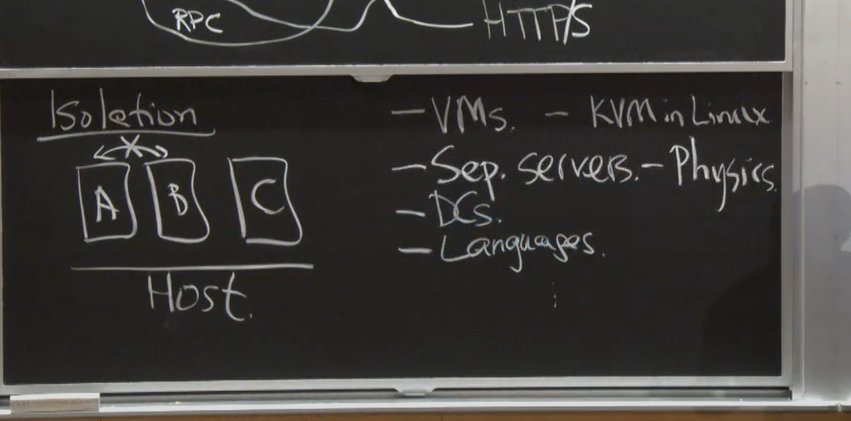 RPC
HTTP/S
Isolation
A B C
Host.
- VMs. - KVM in Linux
- Sep. servers. - Physics.
- DCs.
- Languages.